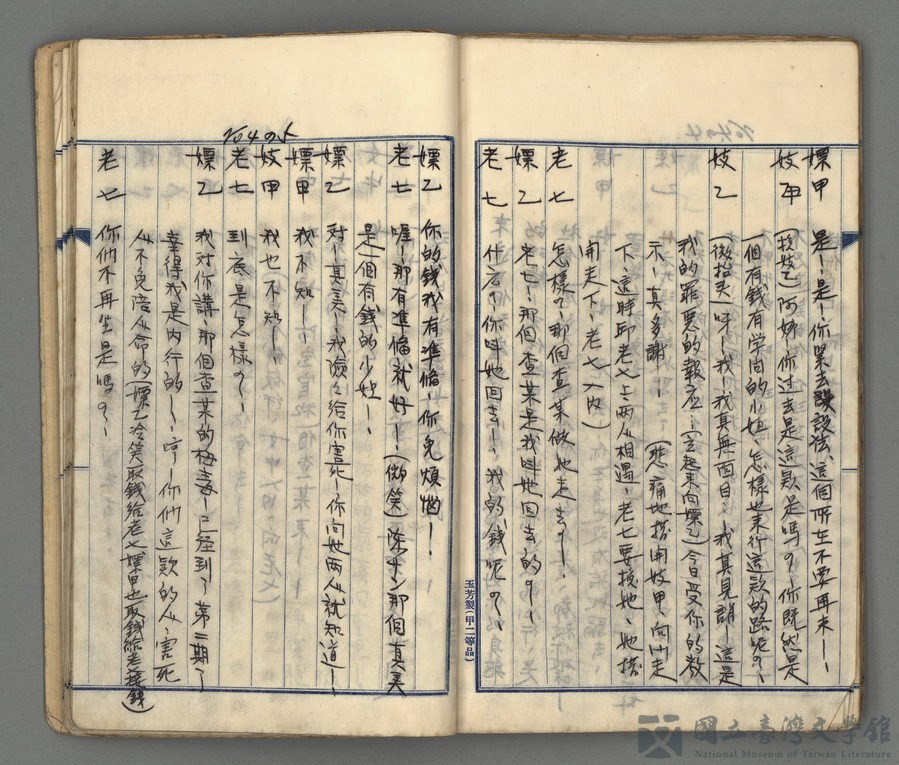 嫖甲 是！、是！、你緊去設法、這個所在不要再来！、
妓甲 (挽妓乙)阿姊你过去是這款是嗎？、你既然是
一個有錢有学尚的小姐、怎樣也来行這款的路呢？、
妓乙 (微抬头)呀！我！、我真無面目！、我真見誚！、這是
我的罪悪的報应！、(立起来向嫖乙)今日受你的教
示！、真多謝！、(悲痛地搭開妓甲、向门走
下、這時郎老七上両人相遇、老七要挽她、她搭
開走下、老七入内)
老七 怎樣？、那個查某做她走去？！、
嫖乙 老七、那個查某是我呌她回去的？！、
老七 什広、你呌她回去！、我的錢呢？、
70404
嫖乙 你的錢我有準偹、你免煩悩！、
老七 喔！、那有準偹就好！、(微笑)陳サン那個真美
是一個有錢的少女！、
嫖乙 对！、真美！、我險々给你害死！、你向她両人就知道！、
嫖甲 我不知！、
妓甲 我也不知！、
老七 到底是怎樣？、
嫖乙 我对你講、那個查某的梅毒！已経到了第二期了
幸得我是内行的！、哼！、你们這款的人、害死
人不免陪人命的(嫖乙冷笑取錢给老七嫖甲也取錢给老七錢)
老七 你们不再坐是嗎？、
玉芳製(甲二等品)
國立臺灣文學館
National Museum of Taiwan Literature